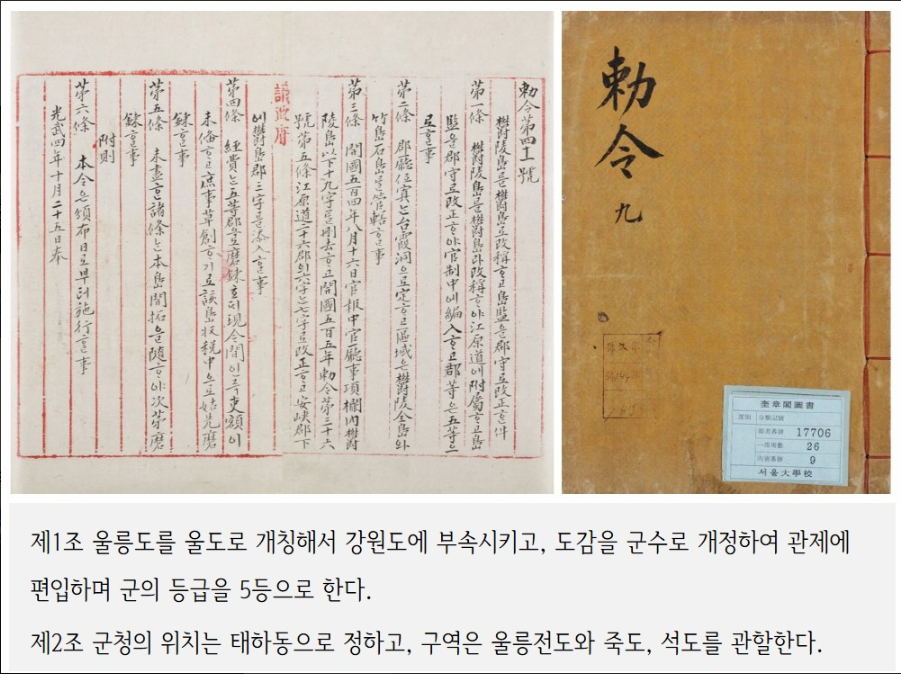 勅令第四十一號
鬱陵島를鬱島로改稱ᄒᆞ고島監을郡守로改正ᄒᆞᆫ件
第一條 鬱陵島를鬱島라改稱ᄒᆞ야江原道에附屬ᄒᆞ고島
監을郡守로改正ᄒᆞ야官制中에編入ᄒᆞ고郡等은五等으
로ᄒᆞᆯ事
第二條 郡廳位寘는台霞洞으로定ᄒᆞ고區域은鬱陵全島와
竹島石島를管轄ᄒᆞᆯ事
第三條 開國五百四年八月十六日官報中官廳事項欄內鬱
陵島以下十九字를刪去ᄒᆞ고開國五百五年勅令第三十六
號第五條江原道二十六郡의六字는七字로改正ᄒᆞ고安峽郡下
議政府
에鬱島郡三字를添入ᄒᆞᆯ事
第四條 經費는五等郡으로磨鍊호ᄃᆡ現今間인즉吏額이
未備ᄒᆞ고庶事草創ᄒᆞ기로該島收稅中으로姑先磨
鍊ᄒᆞᆯ事
第五條 未盡ᄒᆞᆫ諸條는本島開拓을隨ᄒᆞ야次第磨
鍊ᄒᆞᆯ事
附則
第六條 本令은頒布日로부터施行ᄒᆞᆯ事
光武四年十月二十五日奉
勅令 九
奎章閣圖書
17706
26
9
서울大學校
제1조 울릉도를 울도로 개칭해서 강원도에 부속시키고, 도감을 군수로 개정하여 관제에
편입하며 군의 등급을 5등으로 한다.
제2조 군청의 위치는 태하동으로 정하고, 구역은 울릉전도와 죽도, 석도를 관할한다.